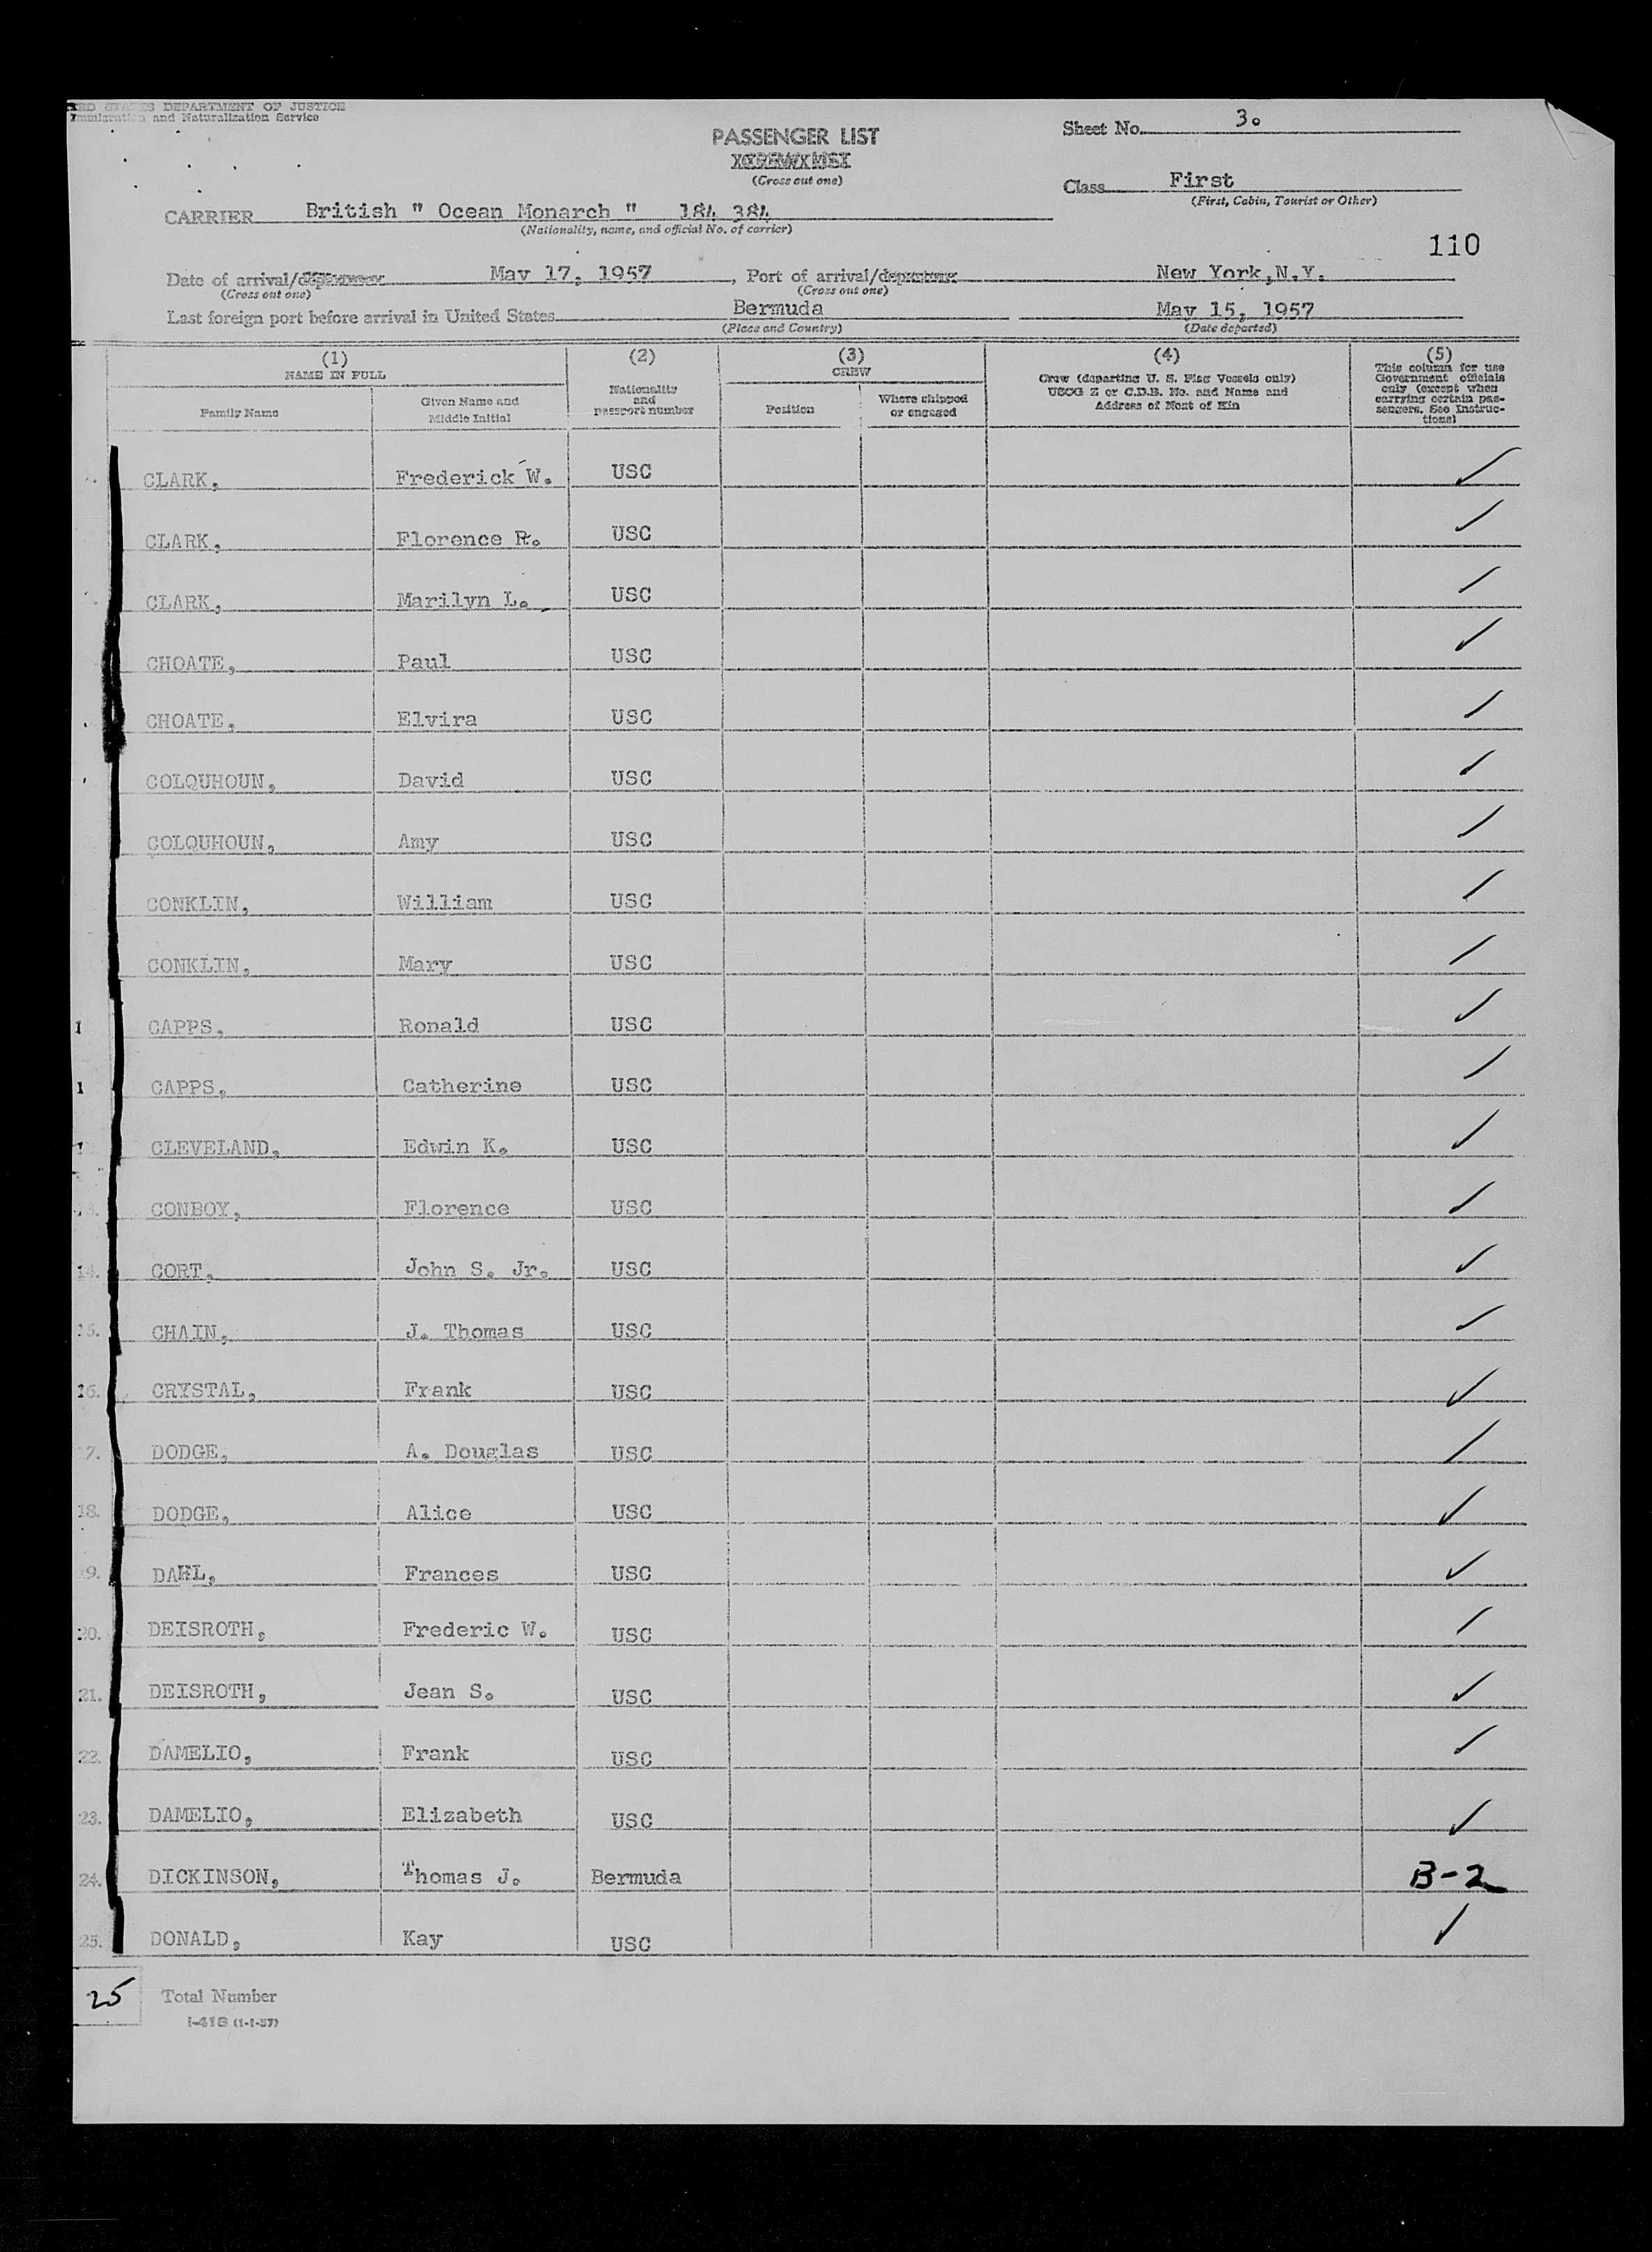 ED STATES DEPARTMENT OF JUSTICE
Immigration and Naturalization Service
PASSENGER LIST
(Cross out one)
Sheet No. 3.
Class First
(First, Cabin, Tourist or Other)
CARRIER British " Ocean Monarch " 184 384
(Nationality, name, and official No. of carrier)
110
Date of arrival/departure May 17, 1957, Port of arrival/departure New York,N.Y.
(Cross out one) (Cross out one)
Last foreign port before arrival in United States Bermuda May 15, 1957
(Place and Country) (Date departed)
(1) (2) (3) (4) (5)
NAME IN FULL
Family Name
Given Name and
Middle Initial
Nationality
and
passport number
CREW
Position
Where shipped
or engaged
Crew (departing U. S. Flag Vessels only)
USCG Z or C.D.B. No. and Name and
Address of Next of Kin
This column for use
Government officials
only (except when
carrying certain pas-
sengers. See Instruc-
tions)
CLARK, Frederick W. USC
CLARK, Florence R. USC
CLARK, Marilyn L. USC
CHOATE, Paul USC
CHOATE, Elvira USC
COLQUHOUN, David USC
COLQUHOUN, Amy USC
CONKLIN, William USC
CONKLIN, Mary USC
1 CAPPS, Ronald USC
1 CAPPS, Catherine USC
1 CLEVELAND, Edwin K. USC
3. CONBOY, Florence USC
14. CORT, John S. Jr. USC
15. CHAIN, J. Thomas USC
16. CRYSTAL, Frank USC
7. DODGE, A. Douglas USC
18. DODGE, Alice USC
9. DAHL, Frances USC
20. DEISROTH, Frederic W. USC
21. DEISROTH, Jean S. USC
22. DAMELIO, Frank USC
23. DAMELIO, Elizabeth USC
24. DICKINSON, Thomas J. Bermuda B-2
25. DONALD, Kay USC
25 Total Number
I-418 (1-1-57)